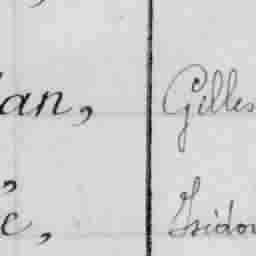 an, Gilles
c, Isidor